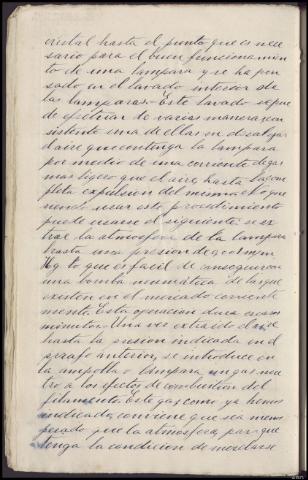 cristal hasta el punto que es nece
sario para el buen funcionamien
to de una lampara y se ha pen
sado en el lavado interior de
las lamparas. Este lavado se pue
de efectuar de varias maneras, con
sistente una de ellas en desalojar
el aire que contenga la lampara
por medio de una corriente de gas
mas ligero que el aire, hasta la com
pleta expulsion del mismo
usar este procedimiento
puede usarse el siguiente: se ex
trae la atmosfera de la lampara
hasta una presion de
Hg lo que es facil de conseguir con
una bomba neumatica de las que
existen en el mercado corriente
mente. Esta operacion dura escasos
minutos. Una vez extraido el aire
hasta la presion indicada en el
parrafo anterior, se introduce en
la ampolla o lampara, un gas neu
tro a los efectos de combustion del
filamento. Este gas, como ya hemos
indicado, conviene que sea menos
pesado que la atmosfera, para que
tenga la condicion de mezclarse